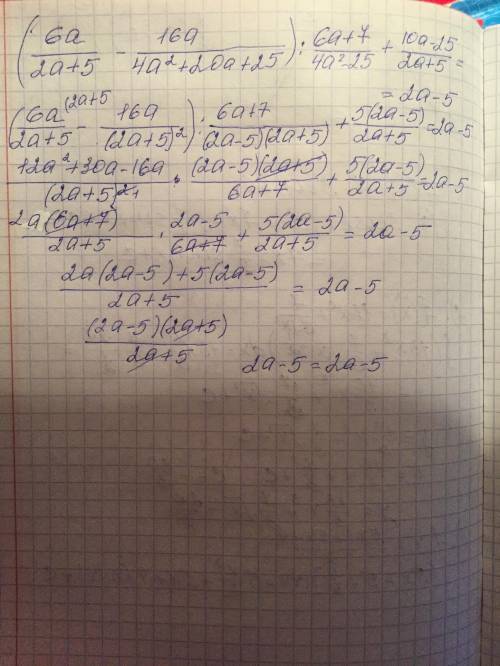 (6a/(2a+5) - 16a/(4a²+20a+25)) : (6a+7)/(4a²-25) + (10a-25)/(2a+5) =
= 2a-5
(6a^(2a+5)/(2a+5) - 16a/(2a+5)²) : (6a+7)/((2a-5)(2a+5)) + 5(2a-5)/(2a+5) = 2a-5
(12a²+30a-16a)/(2a+5)² · (2a-5)(2a+5)/(6a+7) + 5(2a-5)/(2a+5) = 2a-5
2a(6a+7)/(2a+5) · (2a-5)/(6a+7) + 5(2a-5)/(2a+5) = 2a-5
(2a(2a-5)+5(2a-5))/(2a+5) = 2a-5
(2a-5)(2a+5)/(2a+5)
2a-5=2a-5